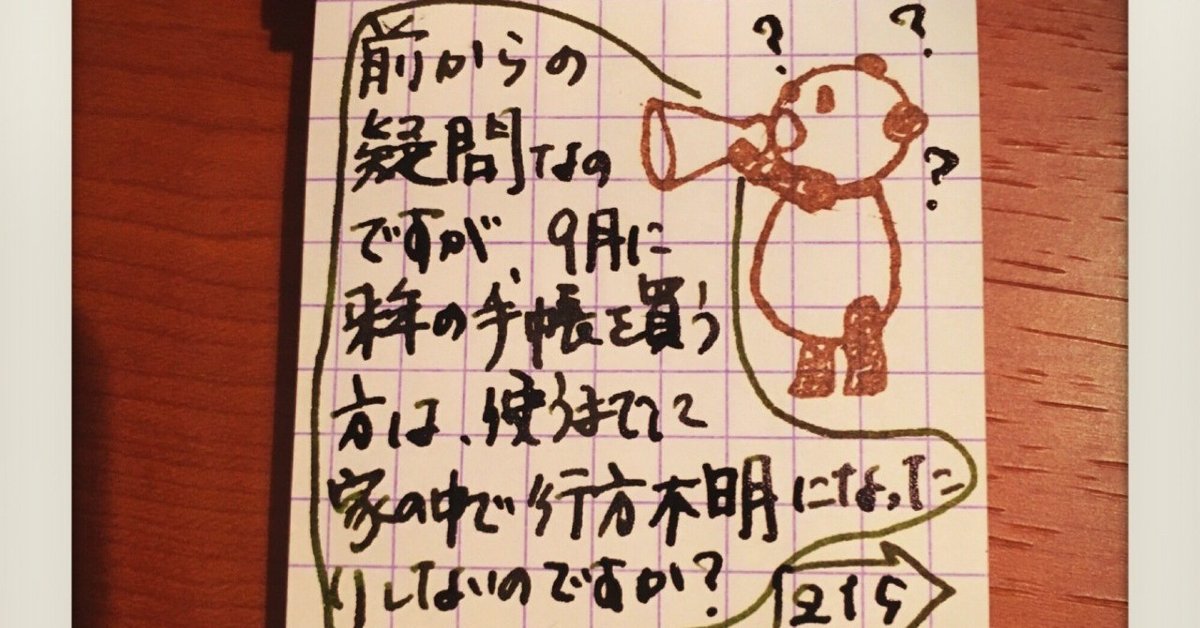 ? ?
?
前からの
疑問なの
ですが、9月に
来年の手帳を買う
方は、使うまでに
家の中で行方不明になった
りしないのですか?